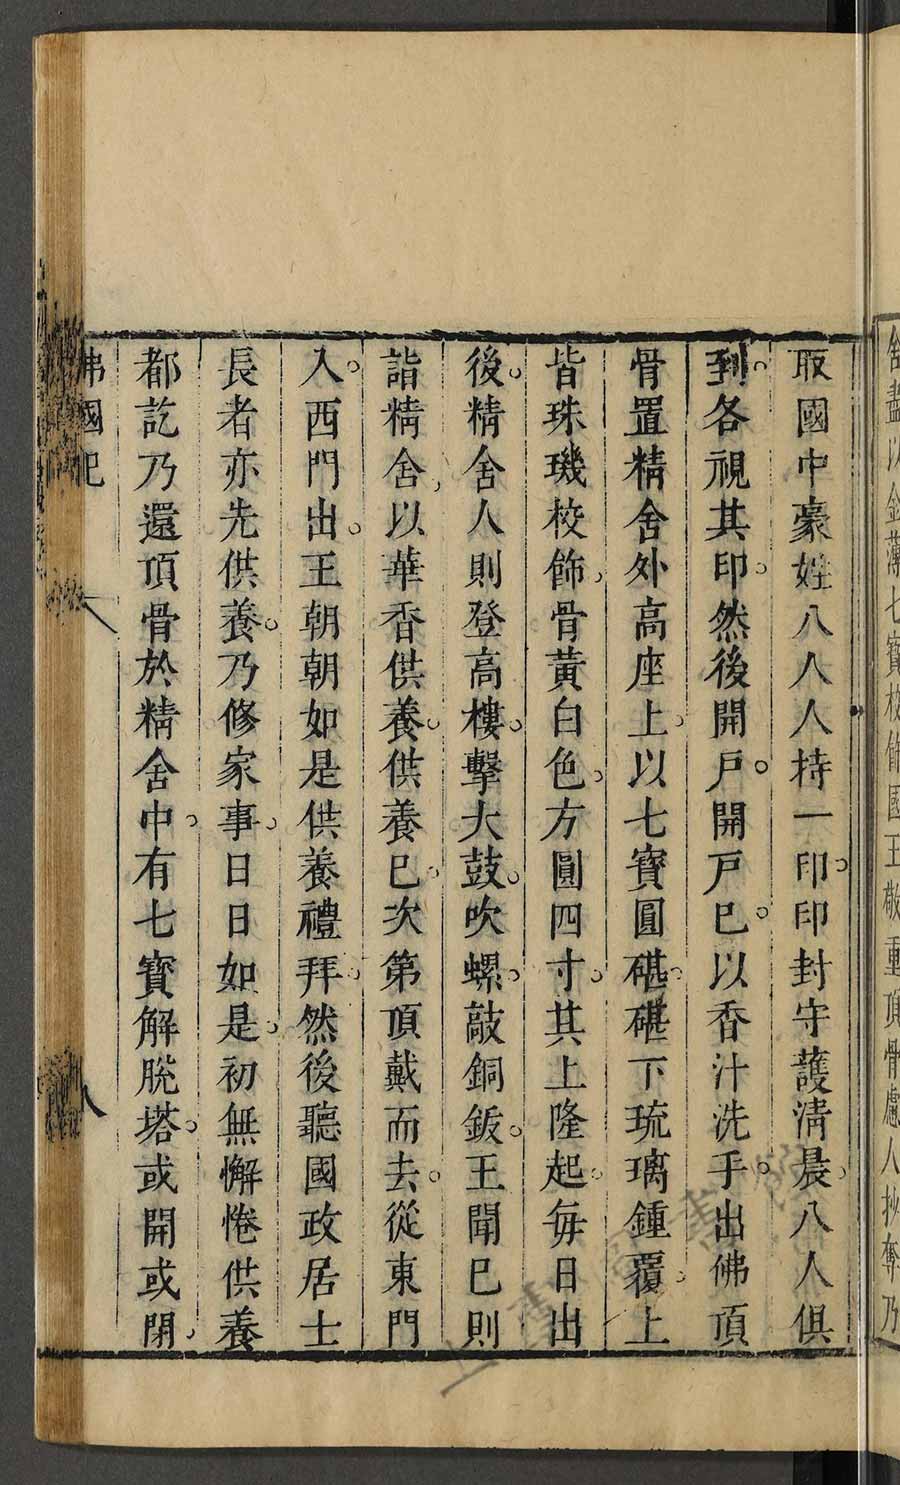 舍盡以金薄七寶校飾國王敬重頂骨慮人抄奪乃
取國中豪姓八人人持一印。印封守護清晨。八人俱
到。各視其印。然後開戶。開戶已。以香汁洗手。出佛頂
骨置精舍外高座上。以七寶圓碪。碪下琉璃鍾覆。上
皆珠璣校飾。骨黃白色。方圓四寸。其上隆起。每日出
後。精舍人則登高樓。擊大鼓。吹螺。敲銅鈸。王聞已則
詣精舍。以華香供養。供養已。次第頂戴而去。從東門
入。西門出。王朝朝如是供養禮拜。然後聽國政居士
長者亦先供養。乃修家事。日日如是。初無懈惓供養
都訖乃還頂骨於精舍中。有七寶解脫塔。或開或閉。
佛國記
八